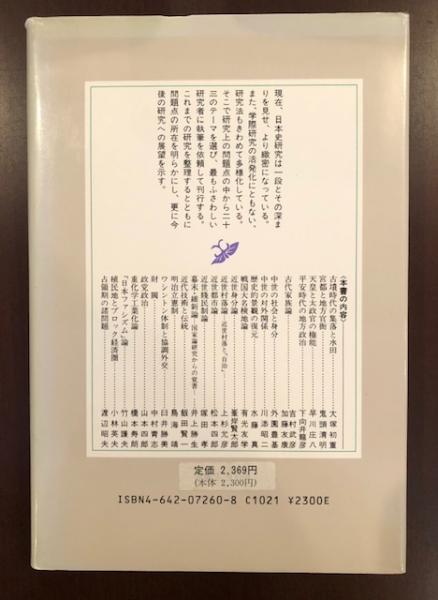 現在、日本史研究は一段とその深ま
りを見せ、より緻密になっている。
また、学際研究の活発化にともない、
研究法もきわめて多様化している。
そこで研究上の問題点の中から二十
三のテーマを選び、最もふさわしい
研究者に執筆を依頼して刊行する。
これまでの研究を整理するとともに
問題点の所在を明らかにし、更に今
後の研究への展望を示す。
〈本書の内容〉
古墳時代の集落と水田 大塚初重
宮都と地方官衙 鬼頭清明
天皇と太政官の権能 早川庄八
平安時代の地方政治 下向井龍彦
古代家族論 吉村武彦
加藤友康
中世の社会と身分 外園豊基
中世の対外関係 川添昭二
歴史的景観の復元 水藤真
戦国大名検地論 有光友学
近世身分論 峯岸賢太郎
近世村落論―近世村落と「自治」― 上杉允彦
近世都市論 松本四郎
近世賤民制論 塚田孝
幕末・維新論―国家論研究からの覚書― 井上勝生
近代技術と伝統 飯田賢一
明治立憲制 鳥海靖
ワシントン体制と協調外交 臼井勝美
財閥 中村青志
政党政治 山本四郎
重化学工業化論 橋本寿朗
「日本ファシズム」論 竹山護夫
植民地とブロック経済圏 小林英夫
占領期の諸問題 渡辺昭夫
定価 2,369円
(本体 2,300円)
ISBN4-642-07260-8 C1021 ¥2300E